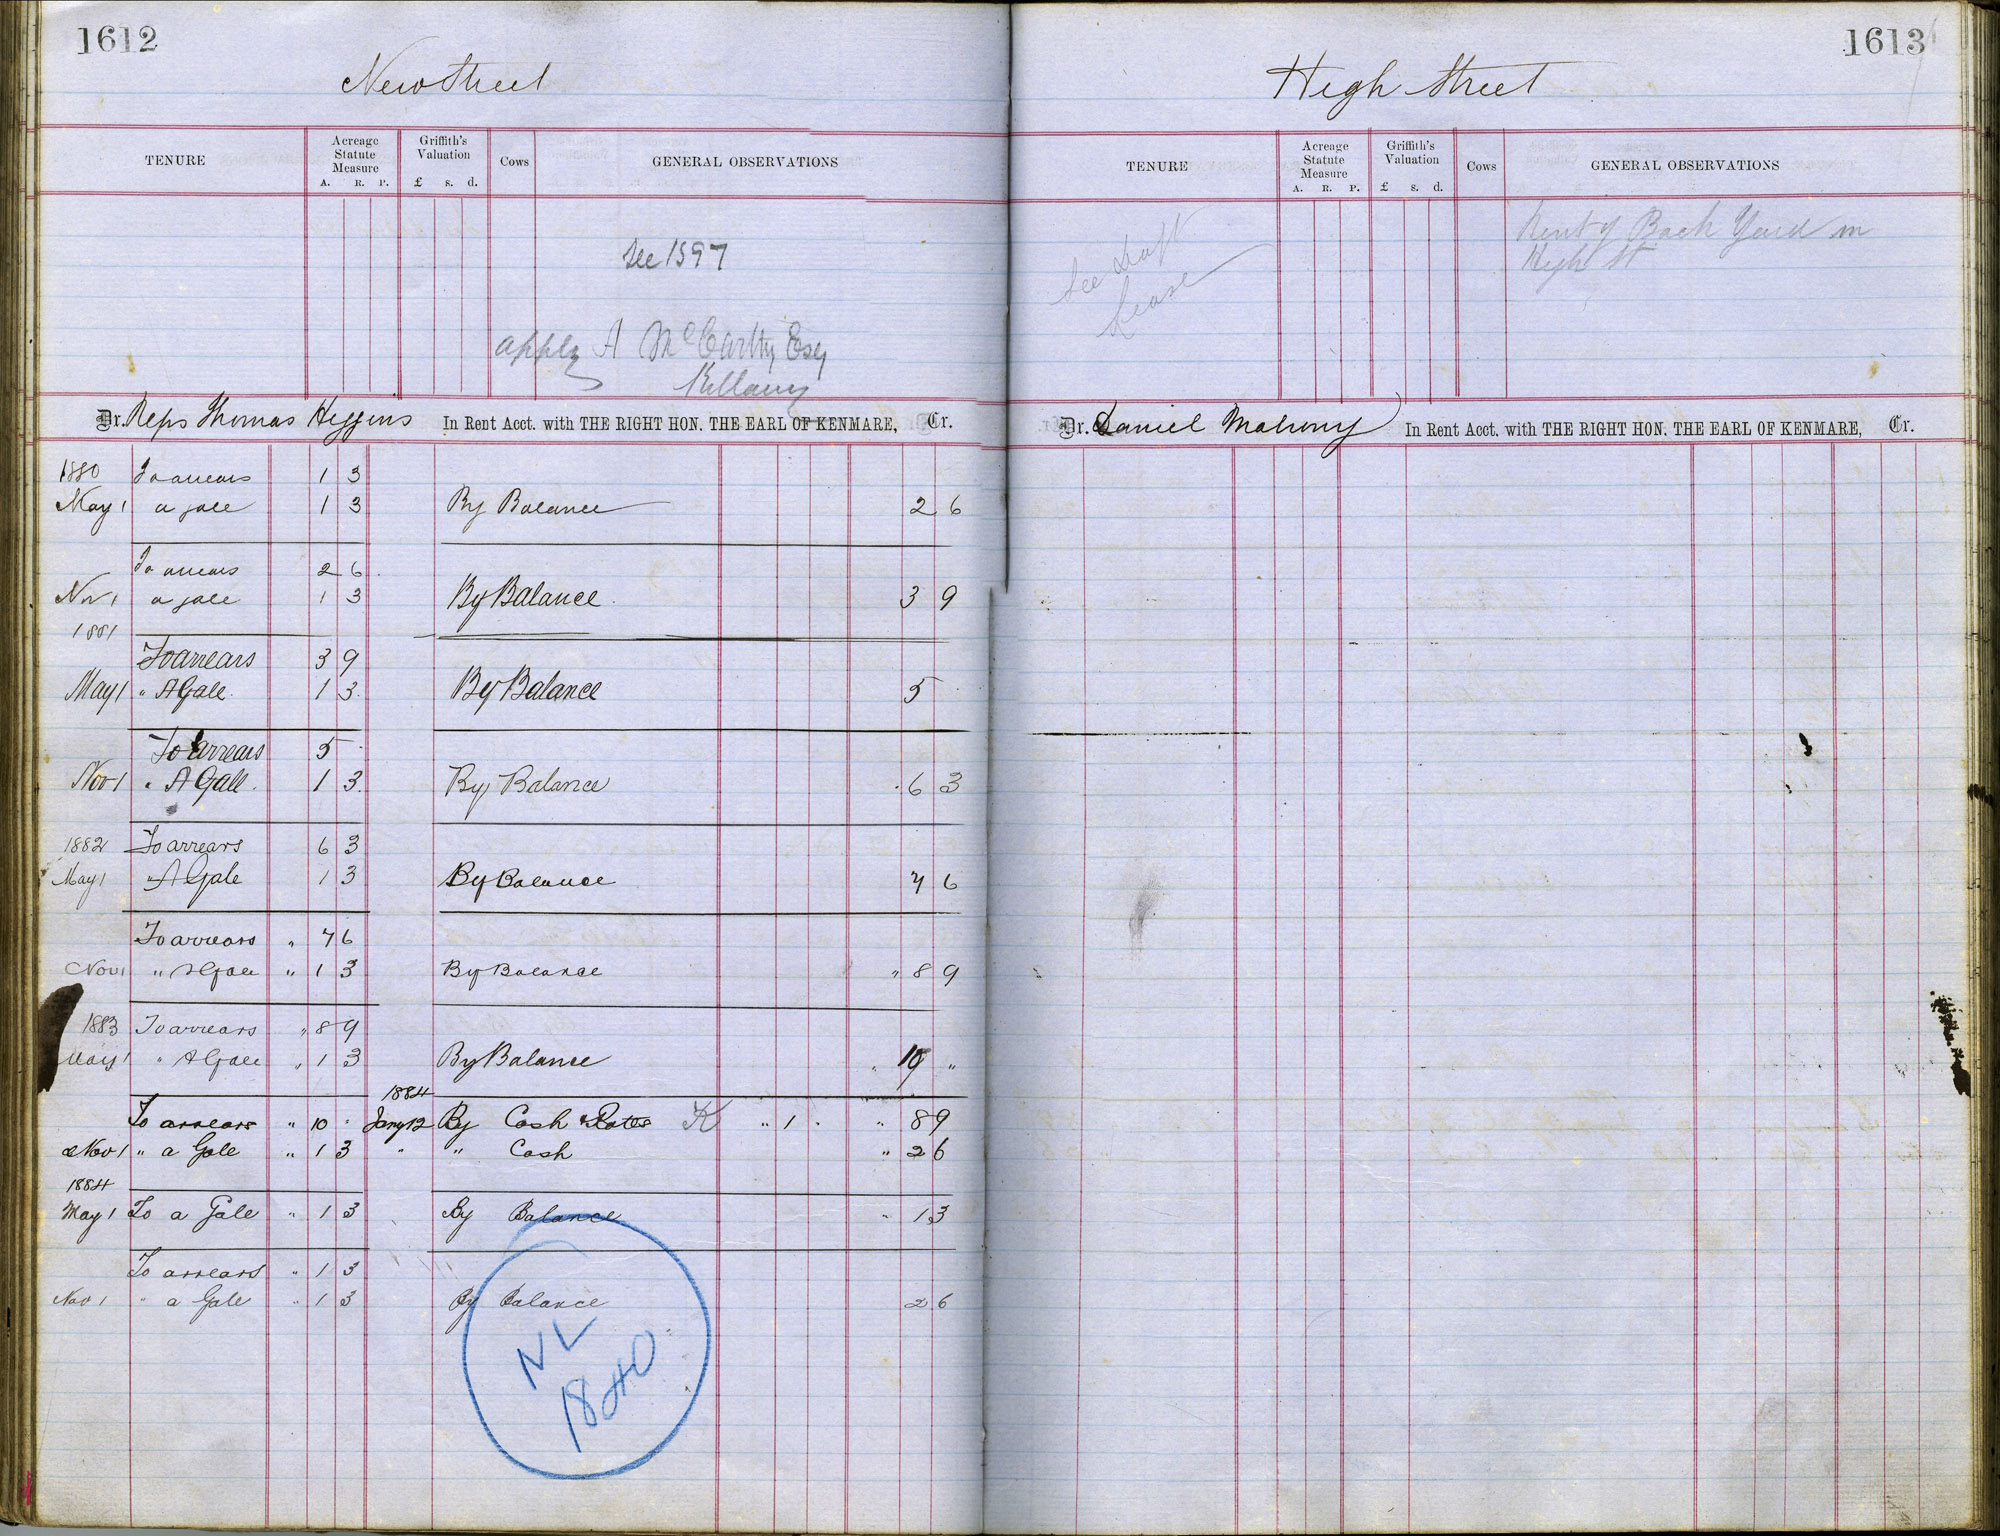 1612
New Street
TENURE
Acreage Statute Measure
A. R. P.
Griffith's Valuation
£ s. d.
Cows
GENERAL OBSERVATIONS
See 1597
apply A McCarthy Esq
Killarny
Dr. Reps Thomas Higgins In Rent Acct. with THE RIGHT HON. THE EARL OF KENMARE, Cr.
1880 To arrears 1 3
May 1 a gale 1 3 By Balance 2 6
To arrears 2 6
Nov 1 a gale 1 3 By Balance 3 9
1881
To arrears 3 9
May 1 " A Gale 1 3 By Balance 5
To arrears 5
Nov 1 " A Gale 1 3 By Balance 6 3
1882 To arrears 6 3
May 1 " A Gale 1 3 By Balance 7 6
To arrears " 7 6
Nov 1 " A Gale " 1 3 By Balance " 8 9
1883 To arrears " 8 9
May 1 " A Gale " 1 3 By Balance " 10 "
1884
To arrears " 10 " Jany 12 By Cash & Rates K " 1 " " 8 9
Nov 1 " a Gale " 1 3 " " Cash " 2 6
1884
May 1 To a Gale " 1 3 By Balance " 1 3
To arrears " 1 3
Nov 1 " a Gale " 1 3 By Balance 2 6
NL
1840
1613
High Street
TENURE
Acreage Statute Measure
A. R. P.
Griffith's Valuation
£ s. d.
Cows
GENERAL OBSERVATIONS
See Draft
Lease
Rent of Back Yard in
High St
Dr. Daniel Mahony In Rent Acct. with THE RIGHT HON. THE EARL OF KENMARE, Cr.